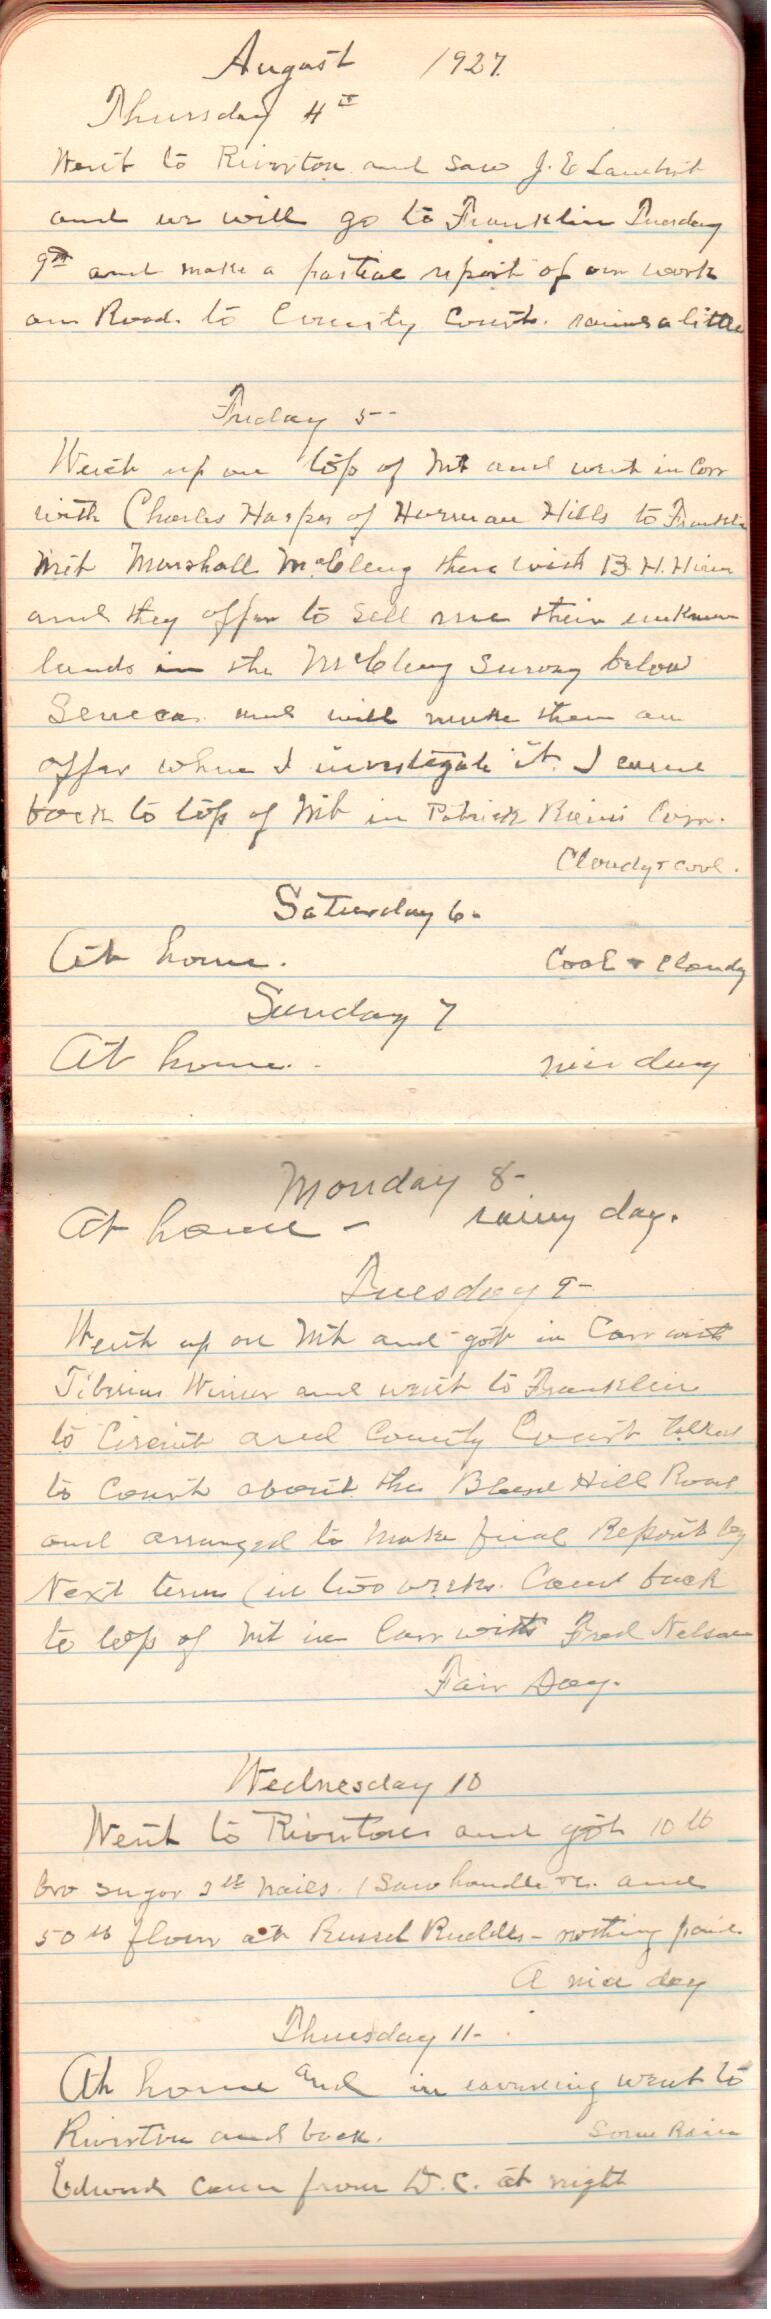 August 1927.
Thursday 4th
Went to Riverton and saw J. E Lambert
and we will go to Franklin Tuesday
9th and make a partial report of our work
on Road to County Court. rained a little
Friday 5-
Went up on top of Mt and went in Carr
with Charles Harper of Hurman Hills to Franklin
Met Marshall McClung there with B. H. Hiner
and they offer to sell me their unknown
lands in the McClung Survey below
Seneca and will make them an
offer when I investigate it. I came
back to top of Mt in Patrick Carr.
Cloudy & cool.
Saturday 6-
At home. Cool & Cloudy
Sunday 7
At home. nice day
Monday 8-
At home - rainy day.
Tuesday 9-
Went up on Mt and got in Carr with
Wimer and went to Franklin
to Circuit and County Court talked
to Court about the Hill Road
and arranged to make final Report by
Next term (in two weeks. Came back
to top of Mt in Carr with Fred Nelson
Fair Day.
Wednesday 10
Went to Riverton and got 10 lb
bro sugar 2 lb nails. 1 Saw handle &c. and
50 lb flour at Russel Ruddles - nothing paid
A nice day
Thursday 11-
At home and in evening went to
Riverton and back. Some Rain
Edward came from D. C. at night